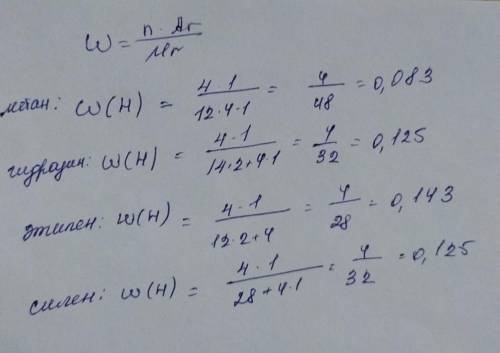 W = n · Ar / Mr
метан: W(H) = 4·1 / 12·4·1 = 4 / 48 = 0,083
гидразин: W(H) = 4·1 / 14·2+4·1 = 4 / 32 = 0,125
этилен: W(H) = 4·1 / 12·2+4 = 4 / 28 = 0,143
силен: W(H) = 4·1 / 28+4·1 = 4 / 32 = 0,125